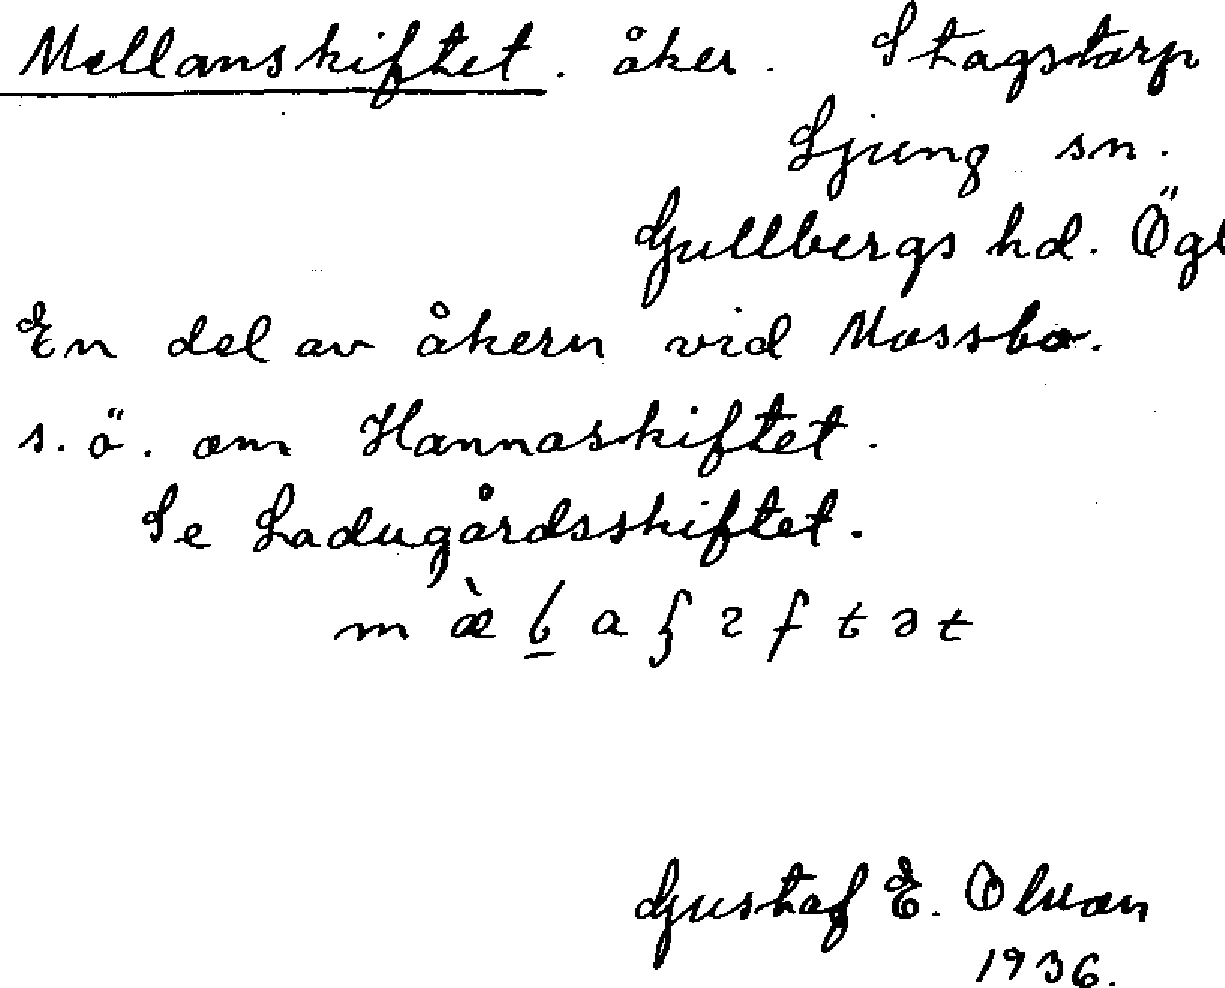 Mellanskiftet. åker. Stagstorp
Ljung sn.
Gullbergs hd. Ögl
En del av åkern vid Mossbo.
s.ö. om Hannaskiftet.
Se Ladugårdsskiftet.
Gustaf E.
1936.